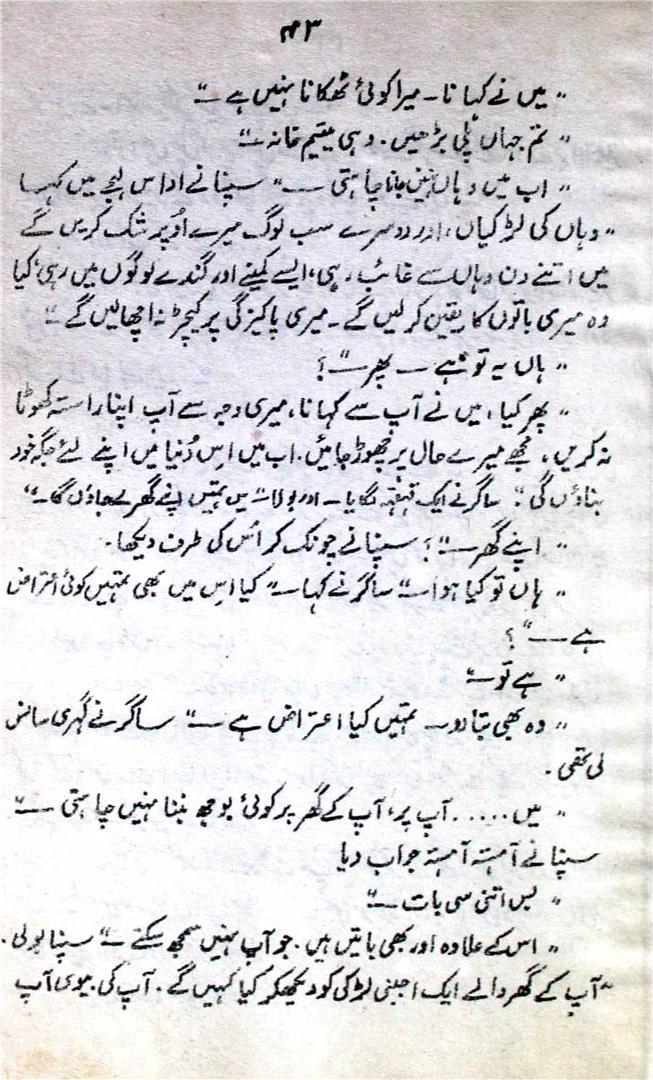 ۴۳
" میں نے کہا نا۔ میرا کوئی ٹھکانا نہیں ہے ۔"
" تم جہاں پلی بڑھیں۔ وہی یتیم خانہ ۔"
" اب میں وہاں نہیں جانا چاہتی ۔" سپنا نے اداس لہجے میں کہا
" وہاں کی لڑکیاں، اور دوسرے سب لوگ میرے اُوپر شک کریں گے
میں اتنے دن وہاں سے غائب رہی، ایسے کمینے اور گندے لوگوں میں رہی، کیا
وہ میری باتوں کا یقین کر لیں گے ۔ میری پاکیزگی پر کیچڑ نہ اچھالیں گے ۔"
" ہاں یہ تو ہے ۔ پھر ۔"؟
" پھر کیا، میں نے آپ سے کہا نا، میری وجہ سے آپ اپنا راستہ کھوٹا
نہ کریں، مجھے میرے حال پر چھوڑ جائیں۔ اب میں اس دُنیا میں اپنے لئے جگہ خود
بناؤں گی " ساگر نے ایک قہقہہ لگایا ۔ اور بولا ۔" میں تمہیں اپنے گھر لے جاؤں گا ۔"
" اپنے گھر ۔"؟ سپنا نے چونک کر اُس کی طرف دیکھا۔
" ہاں تو کیا ہوا ۔" ساگر نے کہا ۔" کیا اس میں بھی تمہیں کوئی اعتراض
ہے ۔"؟
" ہے تو ۔"
" وہ بھی بتا دو ۔ تمہیں کیا اعتراض ہے ۔" ساگر نے گہری سانس
لی تھی ۔
" میں ..... آپ پر، آپ کے گھر پر کوئی بوجھ بننا نہیں چاہتی ۔"
سپنا نے آہستہ آہستہ جواب دیا
" بس اتنی سی بات ۔"
" اس کے علاوہ اور بھی باتیں ہیں۔ جو آپ نہیں سمجھ سکتے ۔" سپنا بولی ۔
" آپ کے گھر والے ایک اجنبی لڑکی کو دیکھکر کیا کہیں گے ۔ آپ کی بیوی آپ